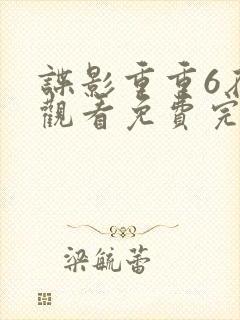 諜影重重6在
觀看免費完
梁毓蕾